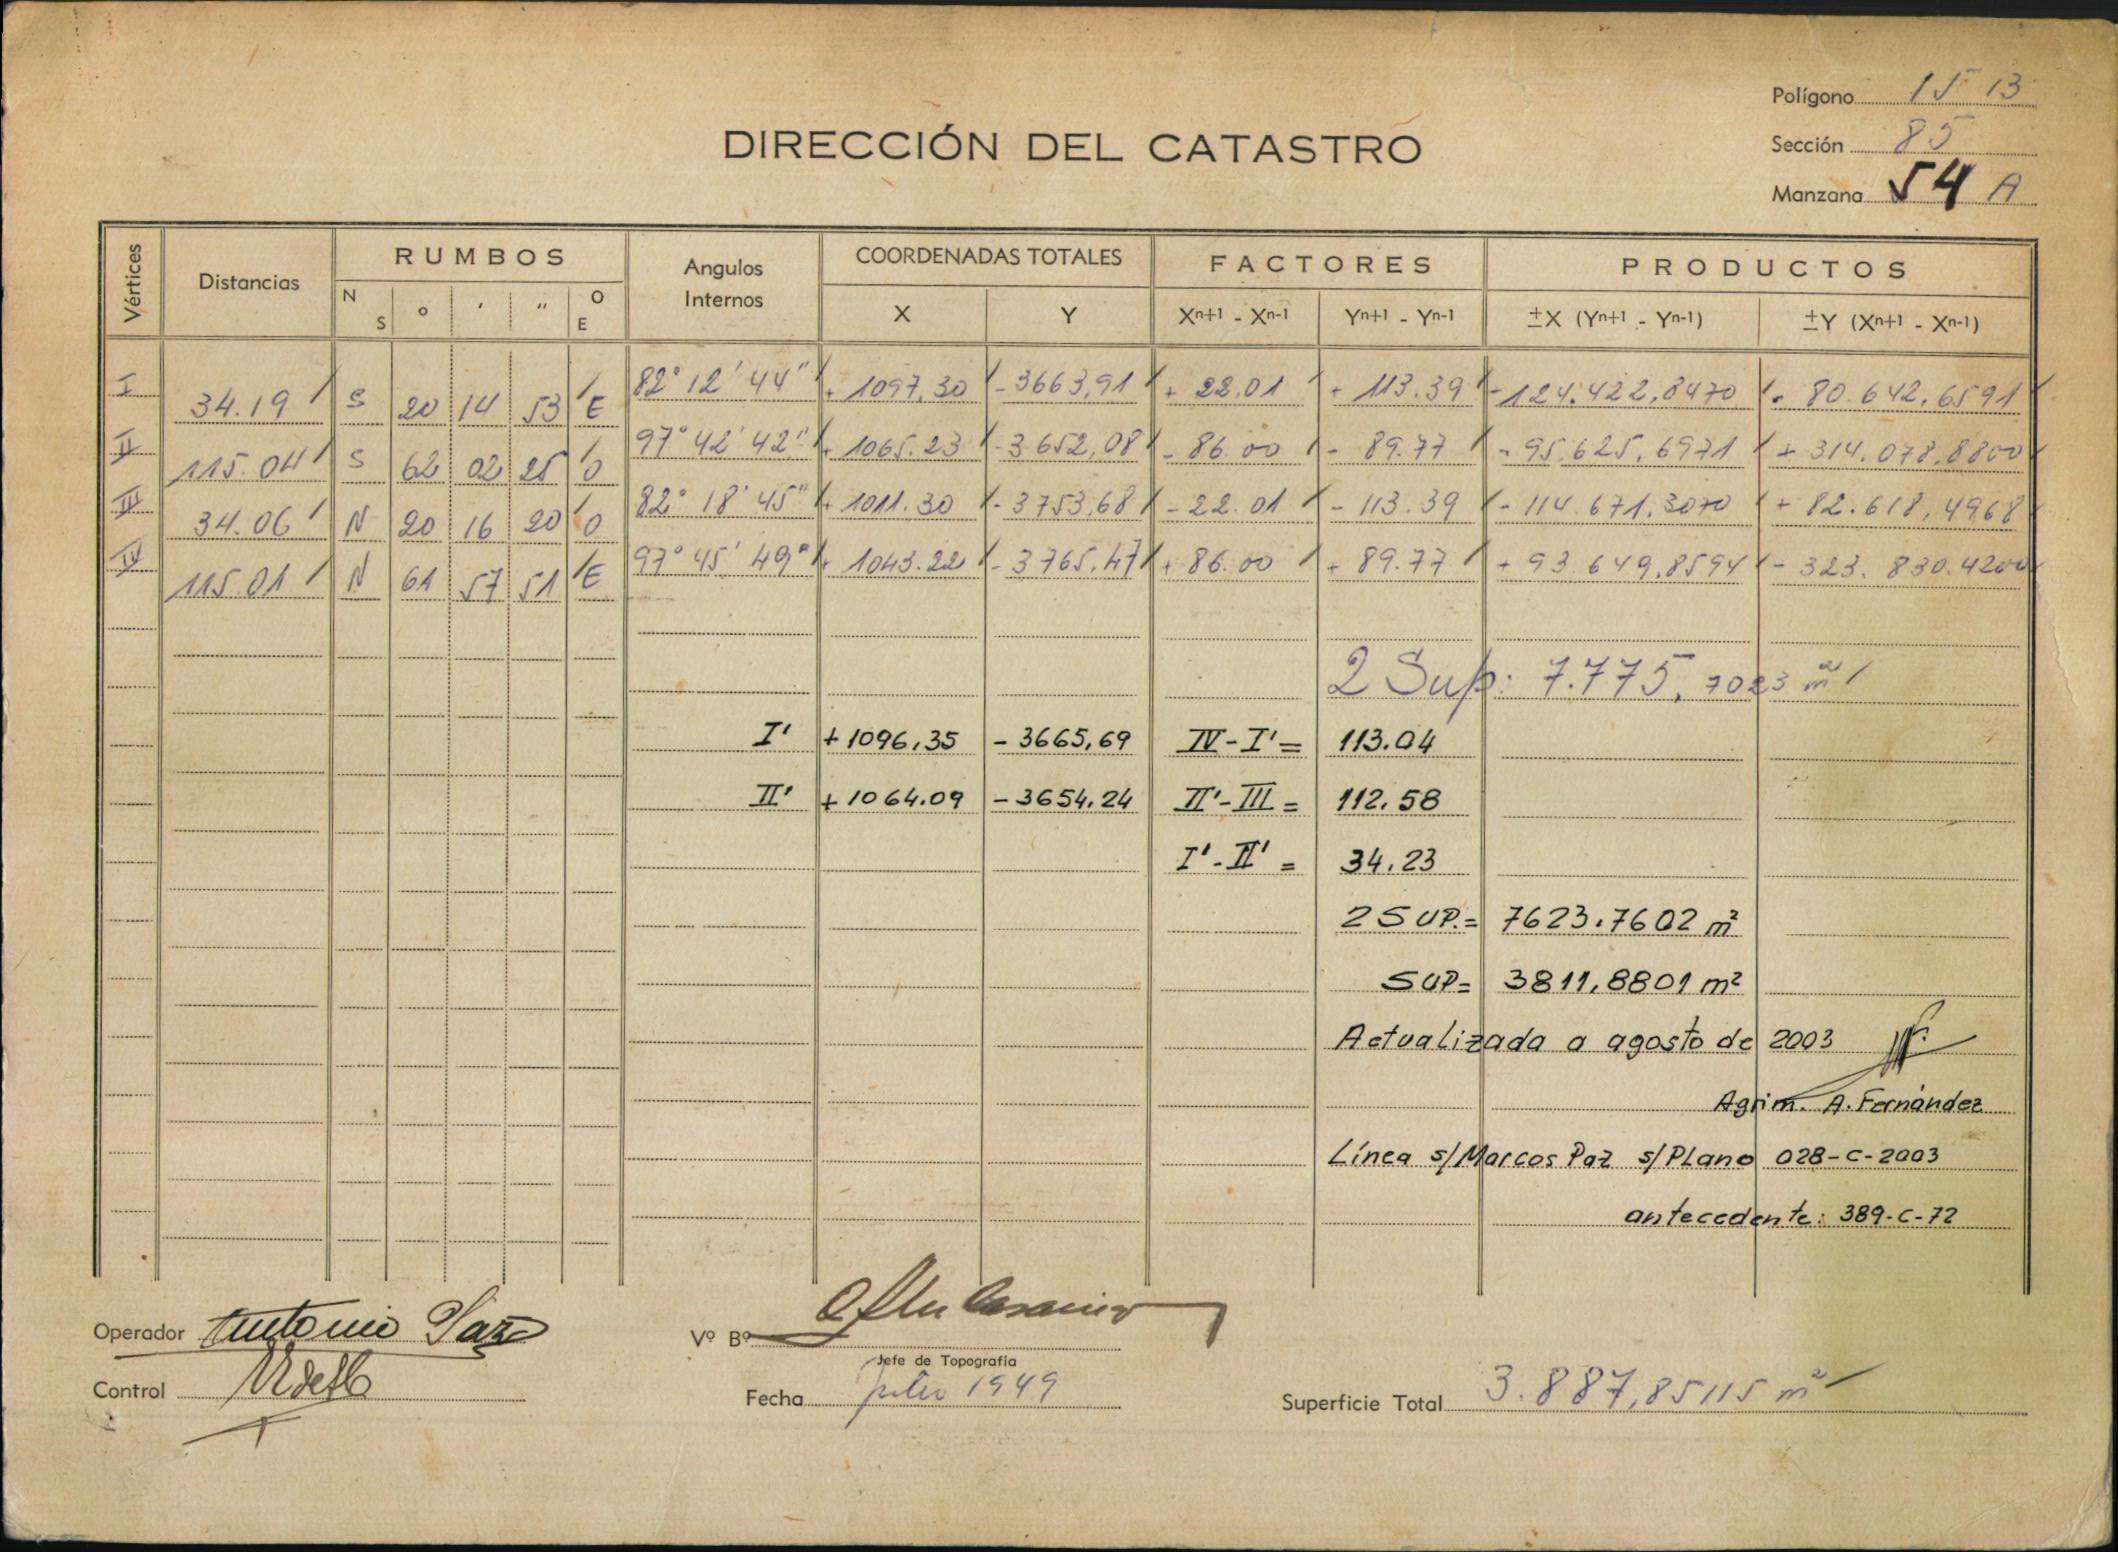 Polígono 15 13
DIRECCIÓN DEL CATASTRO
Sección 85
Manzana 54 A
Vértices Distancias RUMBOS Angulos Internos COORDENADAS TOTALES FACTORES PRODUCTOS
N S ° ′ ″ O E X Y Xn+1 - Xn-1 Yn+1 - Yn-1 ±X (Yn+1 - Yn-1) ±Y (Xn+1 - Xn-1)
I 34.19 S 20 14 53 E 82° 12' 44" + 1097,30 - 3663,91 + 22.01 + 113.39 - 124.422,8470 - 80.642,6591
II 115.04 S 62 02 25 O 97° 42' 42" + 1065.23 - 3652,08 - 86.00 - 89.77 - 95.625,6971 + 314.078,8800
III 34.06 N 20 16 20 O 82° 18' 45" + 1011.30 - 3753,68 - 22.01 - 113.39 - 114.671,3070 + 82.618,4968
IV 115.01 N 61 57 51 E 97° 45' 49" + 1043.22 - 3765,47 + 86.00 + 89.77 + 93.649,8594 - 323.830.4200
2 Sup: 7.775,7023 m²
I' +1096,35 - 3665,69 IV - I' = 113.04
II' +1064.09 - 3654,24 II' - III = 112,58
I' - II' = 34,23
2 SUP.= 7623.7602 m²
SUP= 3811,8801 m²
Actualizada a agosto de 2003
Agrim. A. Fernández
Línea s/Marcos Paz s/Plano 028-C-2003
antecedente: 389-C-72
Operador Antonio
Vº Bº
Jefe de Topografía
Control
Fecha Julio 1949
Superficie Total 3.887,85115 m²